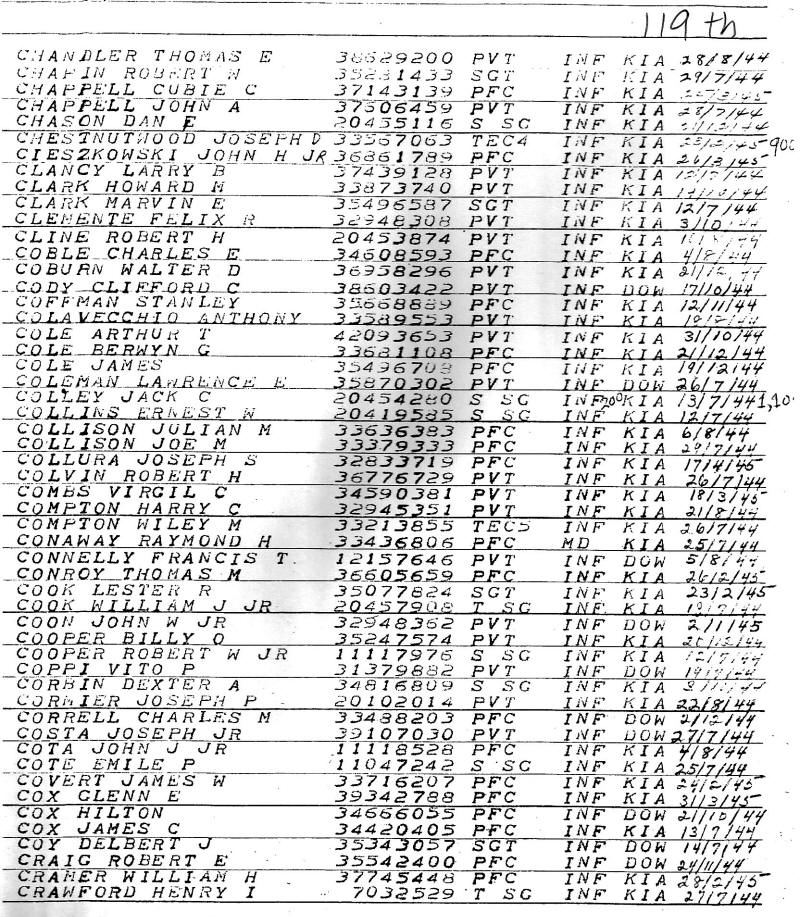 119 th
CHANDLER THOMAS E 38629200 PVT INF KIA 28/8/44
CHAPIN ROBERT W 35231433 SGT INF KIA 29/7/44
CHAPPELL CUBIE C 37143139 PFC INF KIA
CHAPPELL JOHN A 37506459 PVT INF KIA 28/7/44
CHASON DAN E 20455116 S SG INF KIA
CHESTNUTWOOD JOSEPH D 33567063 TEC4 INF KIA
CIESZKOWSKI JOHN H JR 36861789 PFC INF KIA 26/3/45
CLANCY LARRY B 37439128 PVT INF KIA
CLARK HOWARD M 33873740 PVT INF KIA
CLARK MARVIN E 35496587 SGT INF KIA 12/7/44
CLEMENTE FELIX R 32948308 PVT INF KIA 3/10/44
CLINE ROBERT H 20453874 PVT INF KIA
COBLE CHARLES E 34608593 PFC INF KIA 4/8/44
COBURN WALTER D 36958296 PVT INF KIA 21/12/44
CODY CLIFFORD C 38603422 PVT INF DOW 17/10/44
COFFMAN STANLEY 35668889 PFC INF KIA 12/11/44
COLAVECCHIO ANTHONY 33589553 PVT INF KIA
COLE ARTHUR T 42093653 PVT INF KIA 31/10/44
COLE BERWYN G 33681108 PFC INF KIA 21/12/44
COLE JAMES 35496708 PFC INF KIA 19/12/44
COLEMAN LAWRENCE E 35870302 PVT INF DOW 26/7/44
COLLEY JACK C 20454280 S SG INF KIA 13/7/44
COLLINS ERNEST W 20419585 S SG INF KIA 12/7/44
COLLISON JULIAN M 33636383 PFC INF KIA 6/8/44
COLLISON JOE M 33379333 PFC INF KIA 29/7/44
COLLURA JOSEPH S 32833719 PFC INF KIA 17/4/45
COLVIN ROBERT H 36776729 PVT INF KIA 26/7/44
COMBS VIRGIL C 34590381 PVT INF KIA 18/3/45
COMPTON HARRY C 32945351 PVT INF KIA 21/8/44
COMPTON WILEY M 33213855 TEC5 INF KIA 26/7/44
CONAWAY RAYMOND H 33436806 PFC MD KIA 25/7/44
CONNELLY FRANCIS T 12157646 PVT INF DOW 5/8/44
CONROY THOMAS M 36605659 PFC INF KIA 26/2/45
COOK LESTER R 35077824 SGT INF KIA 23/2/45
COOK WILLIAM J JR 20457908 T SG INF KIA
COON JOHN W JR 32948362 PVT INF DOW 2/1/45
COOPER BILLY O 35247574 PVT INF KIA
COOPER ROBERT W JR 11117976 S SG INF KIA 12/7/44
COPPI VITO P 31379882 PVT INF DOW 19/7/44
CORBIN DEXTER A 34816809 S SG INF KIA
CORMIER JOSEPH P 20102014 PVT INF KIA 22/8/44
CORRELL CHARLES M 33488203 PFC INF DOW 2/12/44
COSTA JOSEPH JR 39107030 PVT INF DOW 27/7/44
COTA JOHN J JR 11118528 PFC INF KIA 4/8/44
COTE EMILE P 11047242 S SG INF KIA 25/7/44
COVERT JAMES W 33716207 PFC INF KIA 24/2/45
COX GLENN E 39342788 PFC INF KIA 31/3/45
COX HILTON 34666055 PFC INF DOW 21/10/44
COX JAMES C 34420405 PFC INF KIA 13/7/44
COY DELBERT J 35343057 SGT INF DOW 14/7/44
CRAIG ROBERT E 35542400 PFC INF DOW 24/11/44
CRAMER WILLIAM H 37745448 PFC INF KIA 28/2/45
CRAWFORD HENRY I 7032529 T SG INF KIA 27/7/44